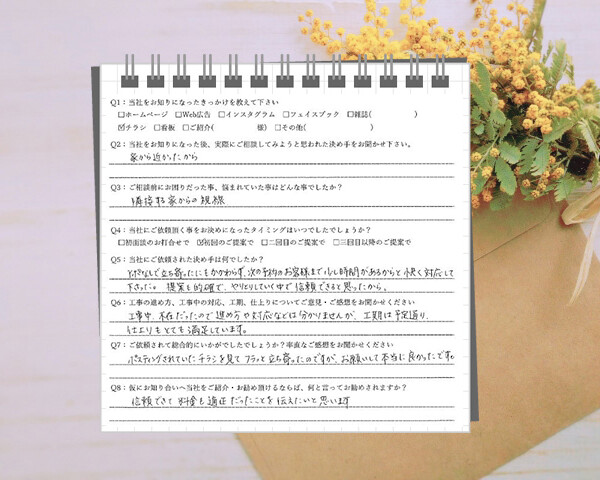 Q1：当社をお知りになったきっかけを教えて下さい
□ホームページ □Web広告 □インスタグラム □フェイスブック □雑誌( )
☑チラシ □看板 □ご紹介( 様) □その他( )
Q2：当社をお知りになった後、実際にご相談してみようと思われた決め手をお聞かせ下さい。
家から近かったから
Q3：ご相談前にお困りだった事、悩まれていた事はどんな事でしたか？
隣接する家からの視線
Q4：当社にご依頼頂く事をお決めになったタイミングはいつでしたでしょうか？
□初面談のお打合せで ☑初回のご提案で □二回目のご提案で □三回目以降のご提案で
Q5：当社に依頼された決め手は何でしたか？
とびこみで立ち寄ったにもかかわらず、次の予約のお客様まで少し時間があるからと快く対応して
下さった。提案も的確で、やりとりしていく中で信頼できると思ったから。
Q6：工事の進め方、工事中の対応、工期、仕上りについてご意見・ご感想をお聞かせください
工事中、不在だったので進め方や対応などは分かりませんが、工期は予定通り、
仕上りもとても満足しています。
Q7：ご依頼されて総合的にいかがでしたでしょうか？率直なご感想をお聞かせください
ポスティングされていたチラシを見てフラッと立ち寄ったのですが、お願いして本当に良かったです。
Q8：仮にお知り合いへ当社をご紹介・お勧め頂けるならば、何と言ってお勧めされますか？
信頼できて料金も適正だったことを伝えたいと思います